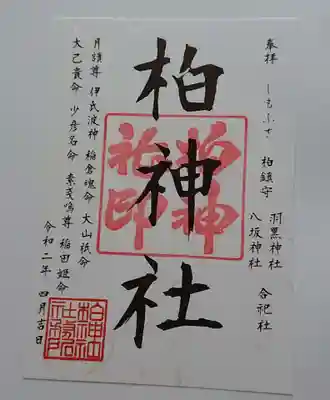 奉拝 しもふさ 柏鎮守 羽黒神社 合祀社
八坂神社
柏神社
月讀尊 伊氐波神 稲倉魂命 大山祇命
大己貴命 少彦名命 素戔嗚尊 稲田姫命
令和二年 四月吉日